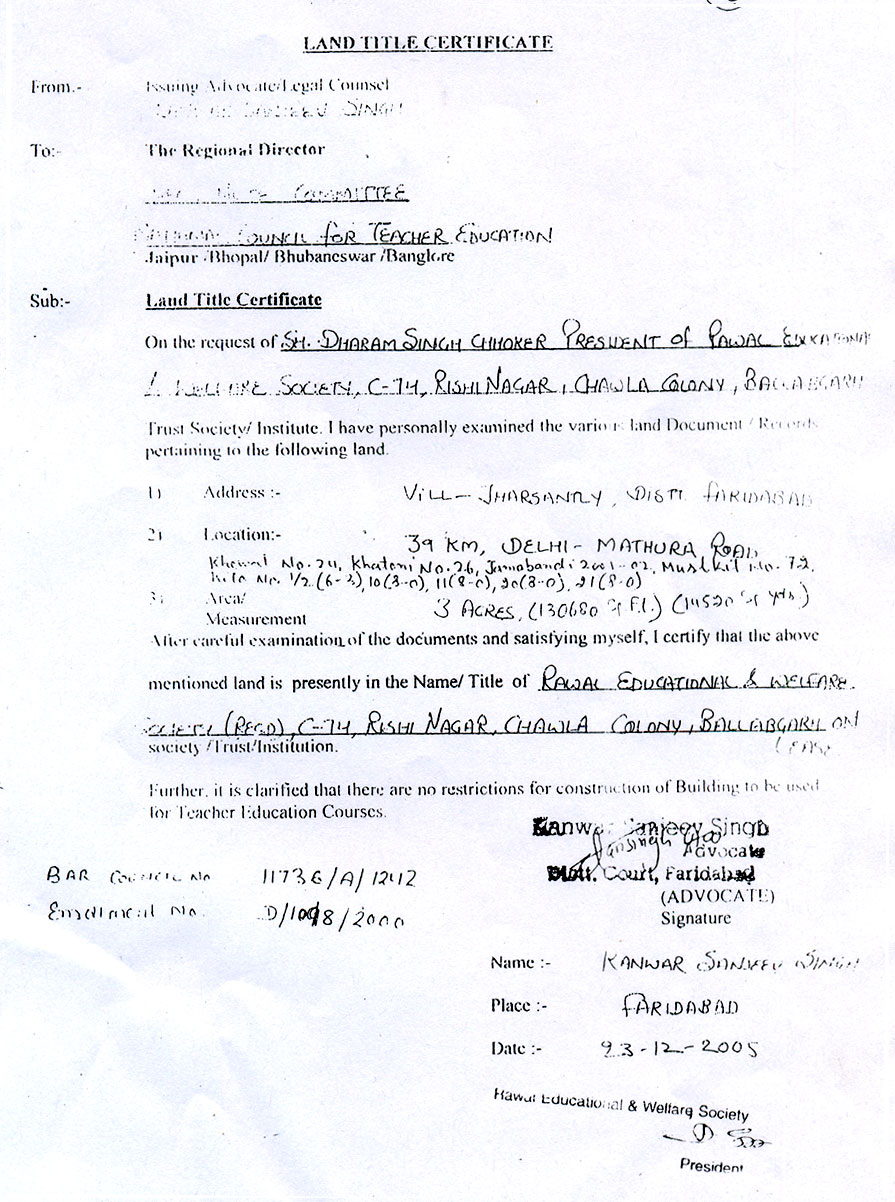 LAND TITLE CERTIFICATE
From.- Issuing Advocate/Legal Counsel
SINGH
To:- The Regional Director
COMMITTEE
COUNCIL for TEACHER EDUCATION
Jaipur /Bhopal/ Bhubaneswar /Banglore
Sub:- Land Title Certificate
On the request of SH. DHARAM SINGH CHHOKER PRESIDENT of RAWAL
& WELFARE SOCIETY, C-74, RISHI NAGAR, CHAWLA COLONY, BALLABGARH
Trust Society/ Institute. I have personally examined the various land Document / Records
pertaining to the following land.
1) Address :- VILL - JHARSANTLY, DISTT. FARIDABAD
2) Location:- 39 KM, DELHI - MATHURA ROAD
Khewat No. 24, Khatoni No. 26, Jamabandi 2001-02, Mushkil No. 72,
Kila No. 1/2 (6-2), 10(8-0), 11(8-0), 20(8-0), 21(8-0)
3) Area/ 3 ACRES, (130680 Sq Ft.) (14520 Sq yds.)
Measurement
After careful examination of the documents and satisfying myself, I certify that the above
mentioned land is presently in the Name/ Title of RAWAL EDUCATIONAL & WELFARE
SOCIETY (REGD), C-74, RISHI NAGAR, CHAWLA COLONY, BALLABGARH ON
LEASE
society /Trust/Institution.
Further, it is clarified that there are no restrictions for construction of Building to be used
for Teacher Education Courses.
Kanwar Sanjeev Singh
Advocate
Distt. Court, Faridabad
(ADVOCATE)
Signature
BAR COUNCIL No 11736/A/1242
Enrolment No. D/1098/2000
Name :- KANWAR SANJEEV SINGH
Place :- FARIDABAD
Date :- 23-12-2005
Rawal Educational & Welfare Society
President